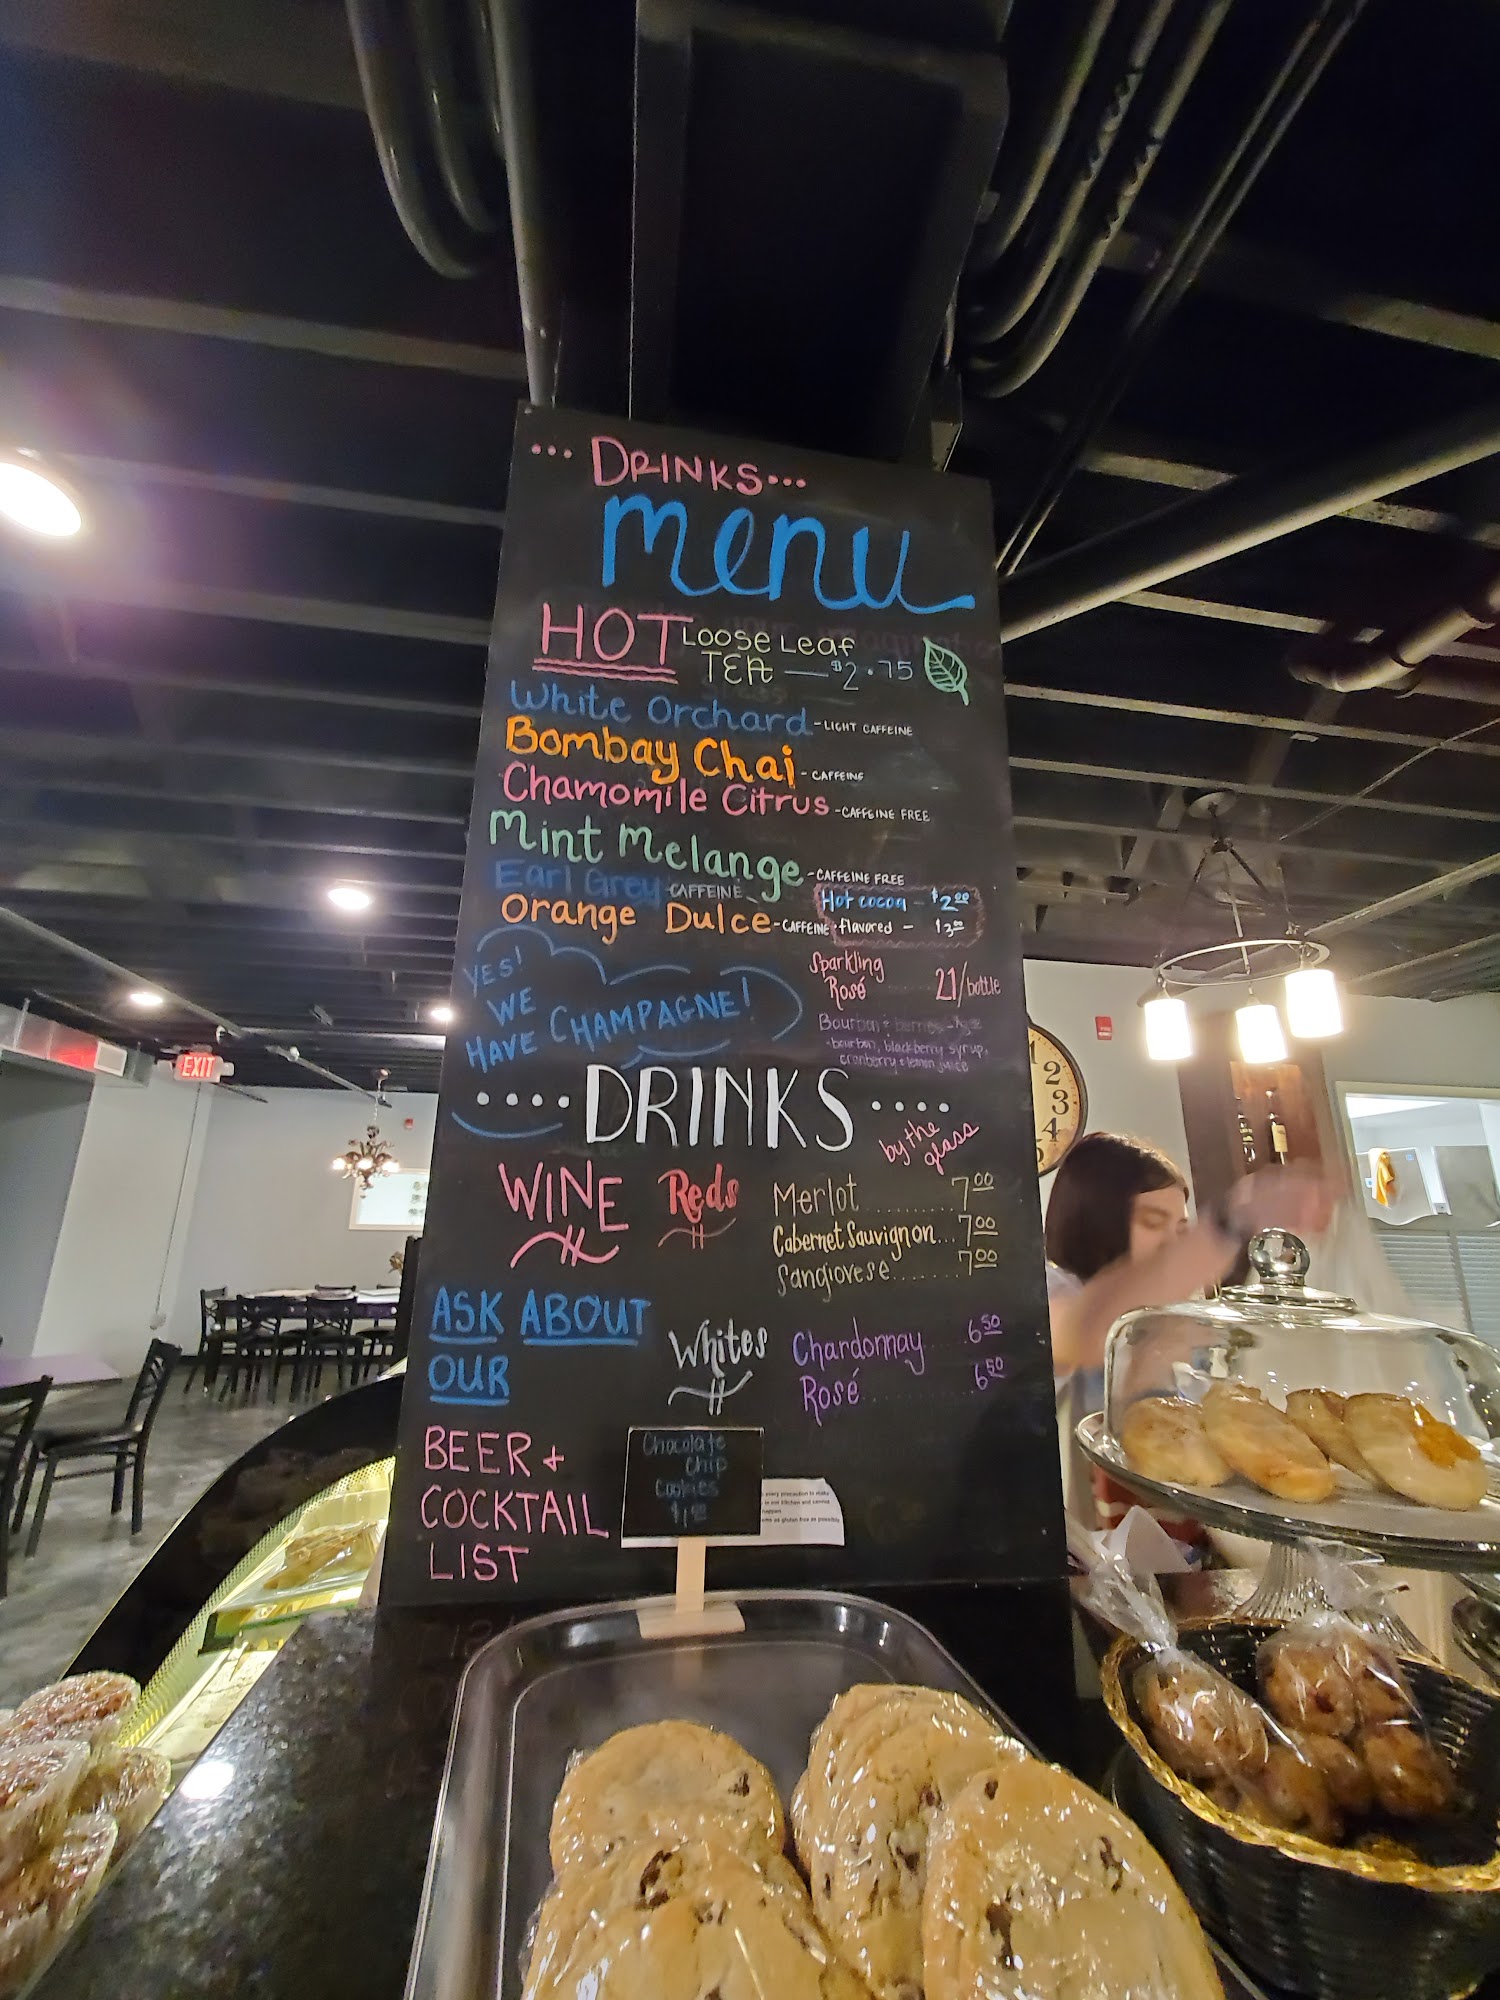 ... DRINKS ...
menu
HOT Loose Leaf
TEA — $2.75
White Orchard - LIGHT CAFFEINE
Bombay Chai - CAFFEINE
Chamomile Citrus - CAFFEINE FREE
Mint Melange - CAFFEINE FREE
Earl Grey - CAFFEINE
Orange Dulce - CAFFEINE
Hot cocoa - $2.00
flavored - $3.00
YES!
WE
HAVE CHAMPAGNE!
Sparkling
Rosé ...... 21/bottle
Bourbon + berries
-bourbon, blackberry syrup,
cranberry + lemon juice
.... DRINKS ....
by the
glass
WINE
Reds
Merlot .......... 7.00
Cabernet Sauvignon... 7.00
Sangiovese ....... 7.00
Whites
Chardonnay ... 6.50
Rosé .......... 6.50
ASK ABOUT
OUR
BEER +
COCKTAIL
LIST
Chocolate
Chip
Cookies
every precaution to make
in our kitchen and cannot
happen.
as gluten free as possible
EXIT
1
2
3
4
5